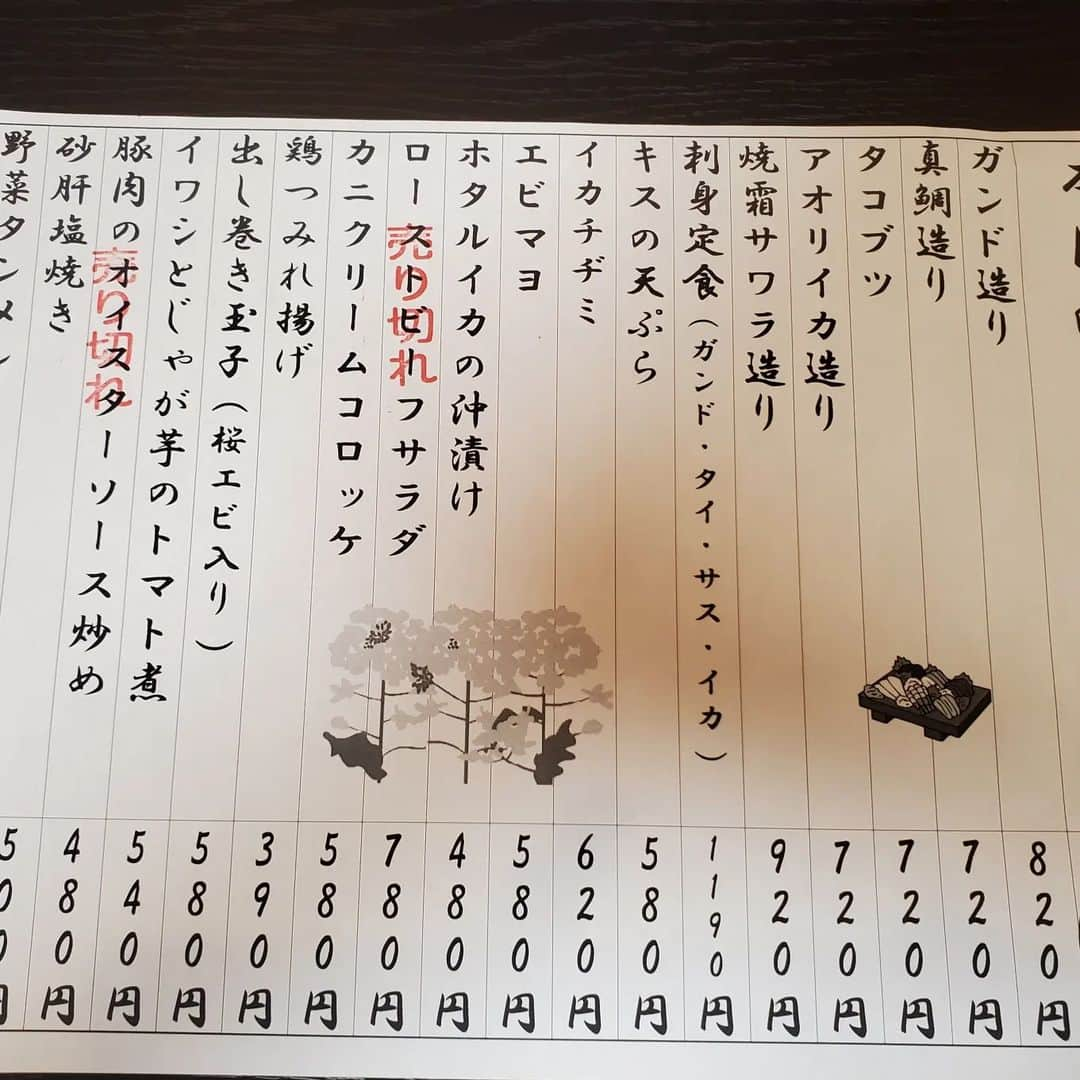 ガンド造り 820円
真鯛造り 720円
タコブツ 720円
アオリイカ造り 720円
焼霜サワラ造り 920円
刺身定食(ガンド・タイ・サス・イカ) 1190円
キスの天ぷら 580円
イカチヂミ 620円
エビマヨ 580円
ホタルイカの沖漬け 480円
ローストビーフサラダ 780円
売り切れ
カニクリームコロッケ 580円
鶏つみれ揚げ 390円
出し巻き玉子(桜エビ入り) 580円
イワシとじゃが芋のトマト煮 540円
豚肉のオイスターソース炒め 480円
売り切れ
砂肝塩焼き
野菜タンメン